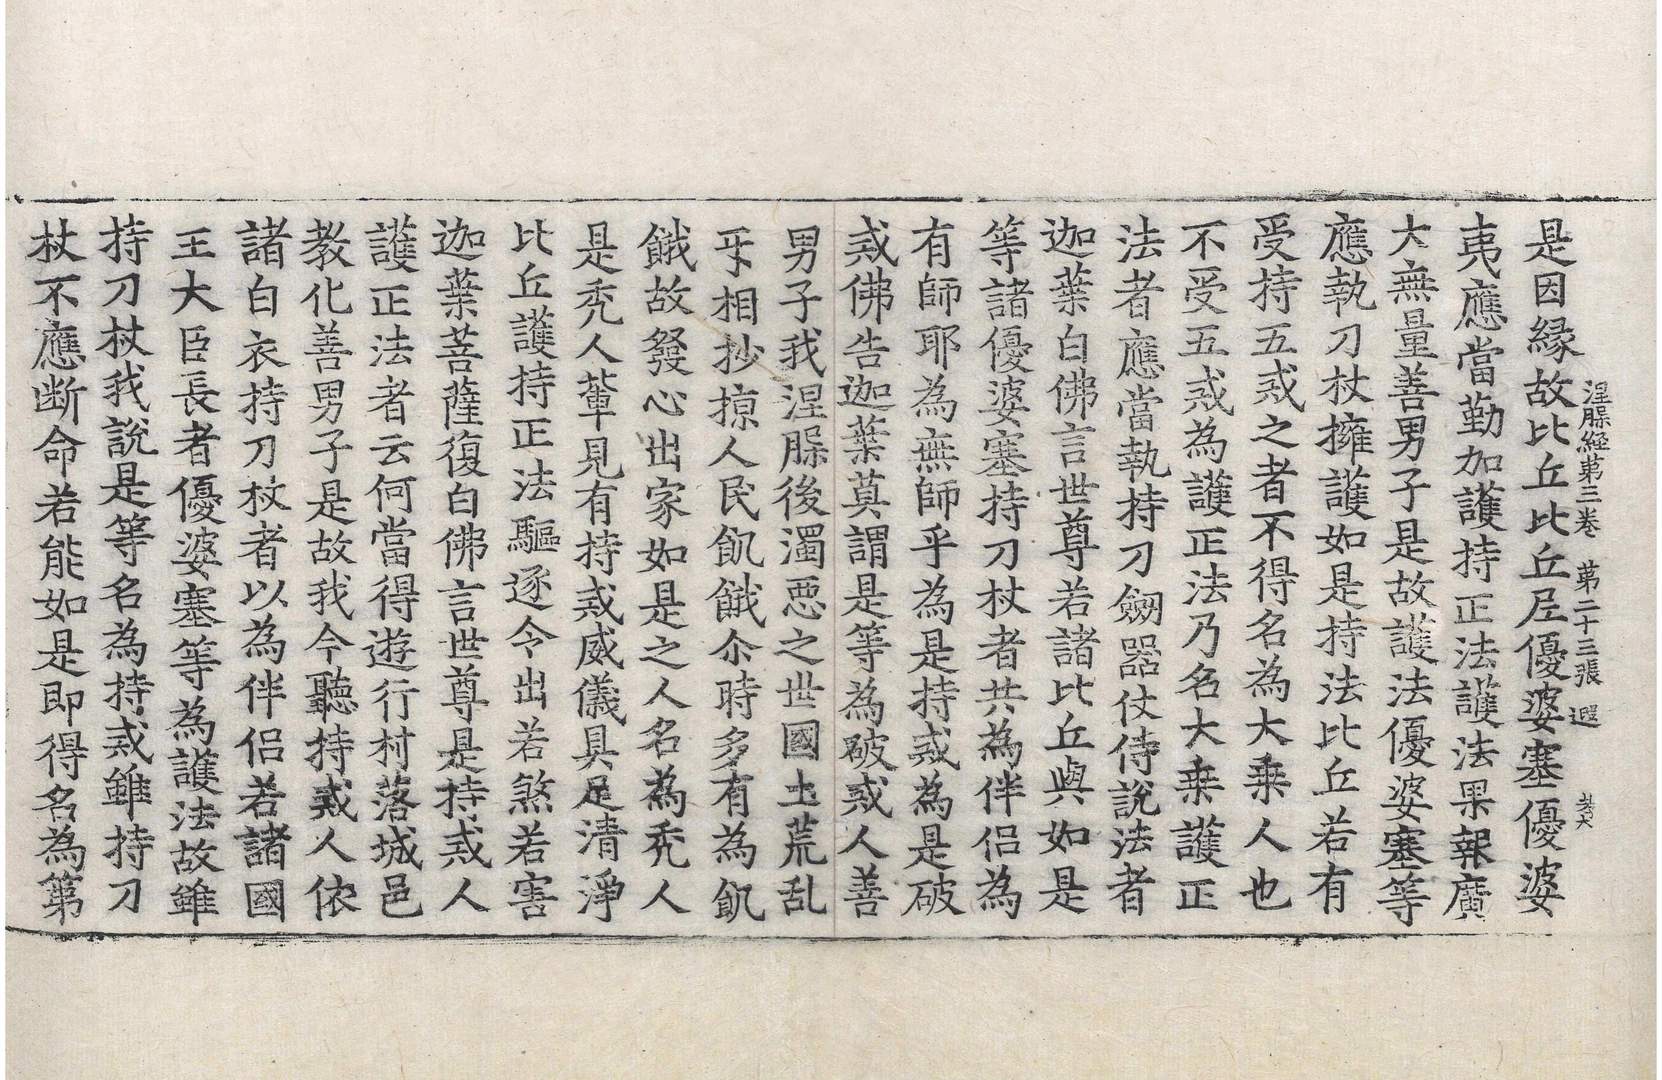 涅槃経苐三巻 苐二十三張 遐
是因縁故比丘比丘尼優婆塞優婆
夷應當勤加護持正法護法果報廣
大無量善男子是故護法優婆塞等
應執刀杖擁護如是持法比丘若有
受持五戒之者不得名為大乗人也
不受五戒為護正法乃名大乗護正
法者應當執持刀劒器仗侍說法者
迦葉白佛言世尊若諸比丘與如是
等諸優婆塞持刀杖者共為伴侣為
有師耶為無師乎為是持戒為是破
戒佛告迦葉莫謂是等為破戒人善
男子我涅槃後濁惡之世國土荒乱
互相抄掠人民飢餓尒時多有為飢
餓故發心出家如是之人名為秃人
是秃人軰見有持戒威儀具足清淨
比丘護持正法驅逐令出若煞若害
迦葉菩薩復白佛言世尊是持戒人
護正法者云何當得遊行村落城邑
教化善男子是故我今聽持戒人依
諸白衣持刀杖者以為伴侣若諸國
王大臣長者優婆塞等為護法故雖
持刀杖我說是等名為持戒雖持刀
杖不應断命若能如是即得名為第